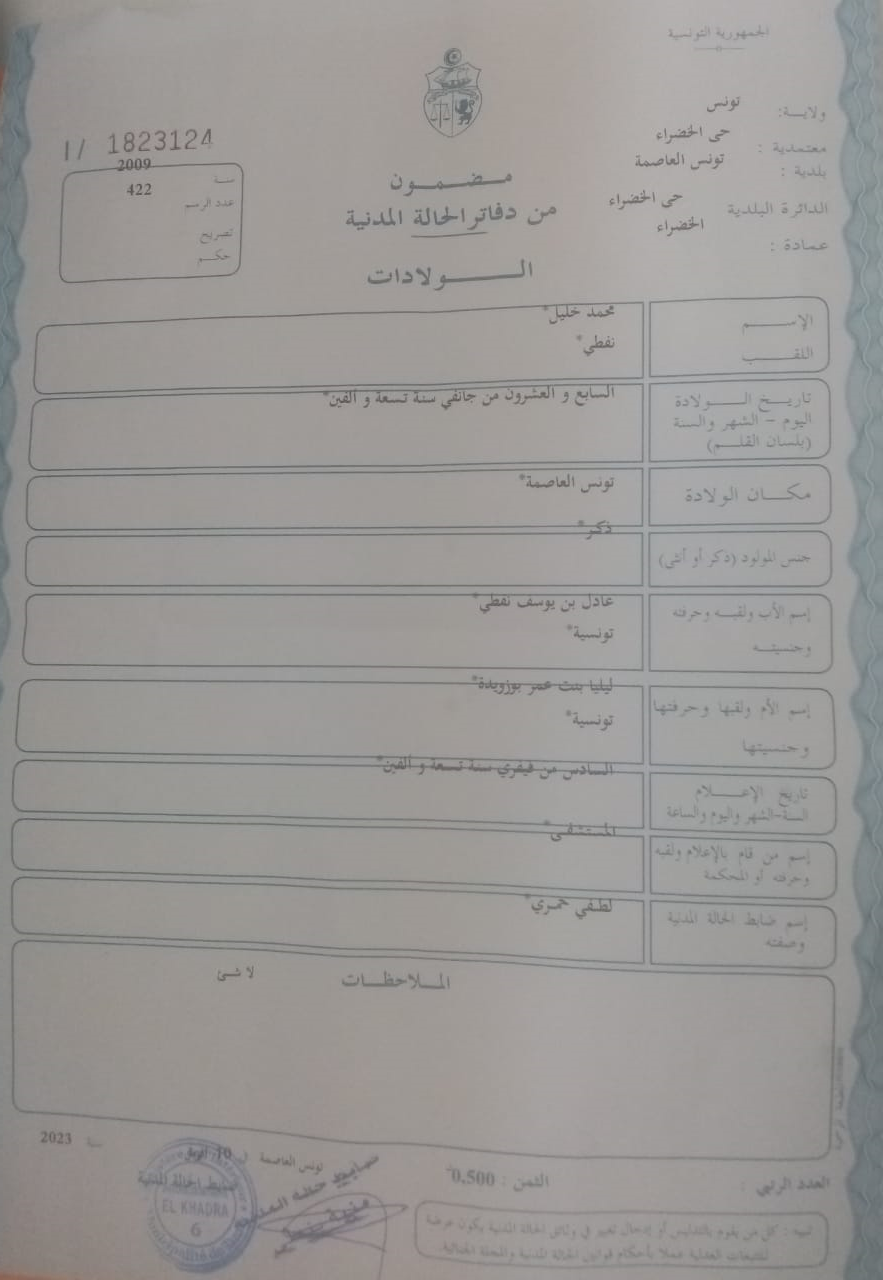 الجمهورية التونسية
ولايــة: تونس
معتمدية : حى الخضراء
بلدية : تونس العاصمة
الدائرة البلدية حى الخضراء
عمادة : الخضراء
I/ 1823124
سنة 2009
عدد الرسم 422
تصريح
حكم
مـضـمــون
من دفاتر الحالة المدنية
الـــولادات
الإســـم محمد خليل*
اللقـــب نفطي*
تاريــخ الـــولادة السابع و العشرون من جانفي سنة تسعة و ألفين*
اليوم - الشهر والسنة
(بلسان القلـم)
مكــان الولادة تونس العاصمة*
جنس المولود (ذكر أو أنثى) ذكر*
إسم الأب ولقبــه وحرفته عادل بن يوسف نفطي*
وجنسيتــه تونسية*
إسم الأم ولقبها وحرفتها ليليا بنت عمر بوزويدة*
وجنسيتها تونسية*
تاريخ الإعـــلام السادس من فيفري سنة تسعة و ألفين*
السنة-الشهر واليوم والساعة
إسم من قام بالإعلام ولقبه المستشفى*
وحرفته أو المحكمة
إسم ضابط الحالة المدنية لطفي حمري*
وصفته
المــلاحظــات لا شئ
العدد الرتبي : الثمن : 0.500د تونس العاصمة 10 سنة 2023
ضابط الحالة المدنية
EL KHADRA
6
تنبيه : كل من يقوم بالتدليس أو إدخال تغيير في وثائق الحالة المدنية يكون عرضة
للتتبعات العدلية عملا بأحكام قوانين الحالة المدنية والمجلة الجنائية.